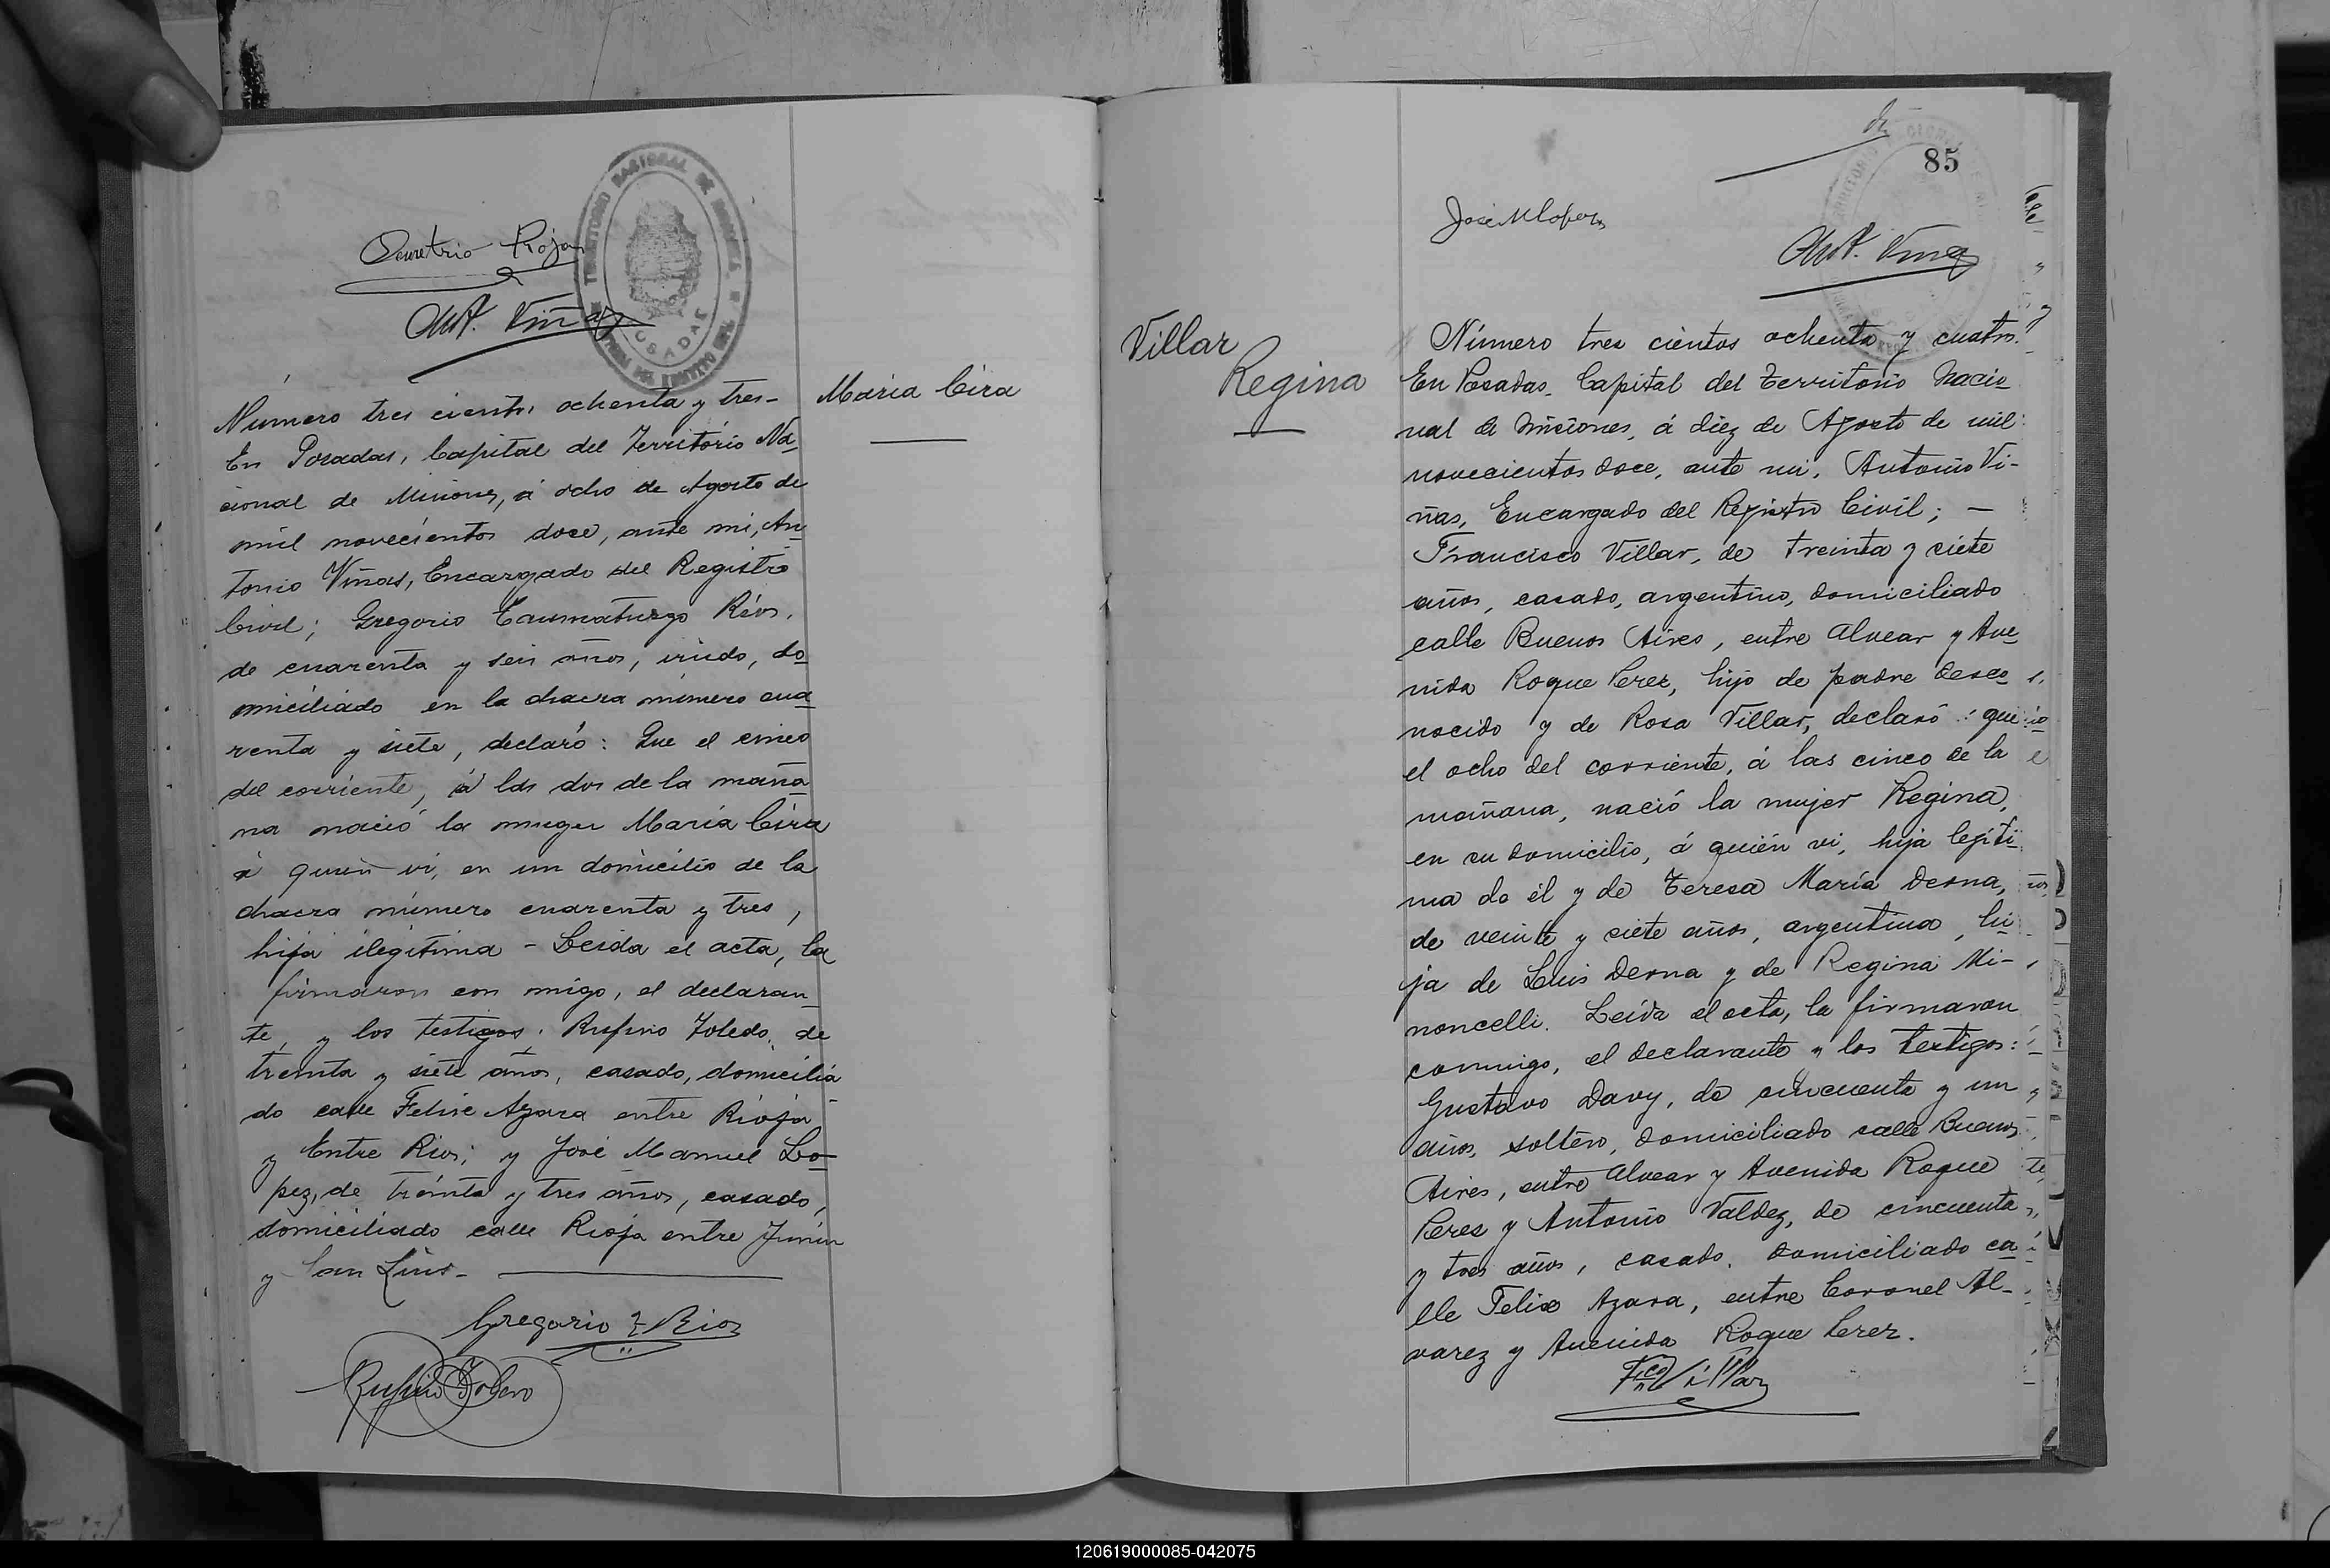 Demetrio Rojas
Ant. Viñas
TERRITORIO NACIONAL DE MISIONES
POSADAS
Número tres cientos ochenta y tres-
En Posadas, Capital del Territorio Na
cional de Misiones, á ocho de Agosto de
mil novecientos doce, ante mi, An
tonio Viñas, Encargado del Registro
Civil; Gregorio Taumaturgo Rios,
de cuarenta y seis años, viudo, do
miciliado en la chacra número cua
renta y siete, declaró: Que el cinco
del corriente, á las dos de la maña
na nació la muger María Cira
á quien vi, en un domicilio de la
chacra número cuarenta y tres,
hija ilegitima - Leida el acta, la
firmaron con migo, el declaran
te, y los testigos: Rufino Toledo, de
treinta y siete años, casado, domicilia
do calle Felix Azara entre Rioja
y Entre Rios; y José Manuel Lo
pez, de treinta y tres años, casado,
domiciliado calle Rioja entre Junin
y San Luis-
Gregorio T Rios
Rufino Toledo
María Cira
85
José M Lopez
Ant. Viñas
Villar
Regina
Número tres cientos ochenta y cuatro.
En Posadas, Capital del Territorio Nacio
nal de Misiones, á diez de Agosto de mil
novecientos doce, ante mi, Antonio Vi-
ñas, Encargado del Registro Civil; —
Francisco Villar, de treinta y siete
años, casado, argentino, domiciliado
calle Buenos Aires, entre Alvear y Ave
nida Roque Perez, hijo de padre desco
nocido y de Rosa Villar, declaró: que
el ocho del corriente, á las cinco de la
mañana, nació la mujer Regina,
en su domicilio, á quién vi, hija legíti-
ma de él y de Teresa María Derna,
de veinte y siete años, argentina, hi
ja de Luis Derna y de Regina Mi-
noncelli. Leída el acta, la firmaron
conmigo, el declarante y los testigos:
Gustavo Davy, de cincuenta y un
años, soltero, domiciliado calle Buenos
Aires, entre Alvear y Avenida Roque
Perez y Antonio Valdez, de cincuenta
y tres años, casado, domiciliado ca
lle Felix Azara, entre Coronel Al-
varez y Avenida Roque Perez.
Fco Villar
120619000085-042075